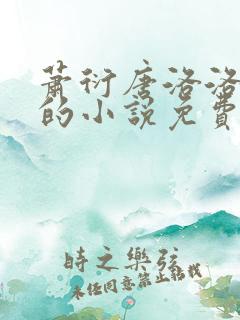 蕭衍唐洛洛
的小說免費
時之樂弦
未經同意禁止轉載